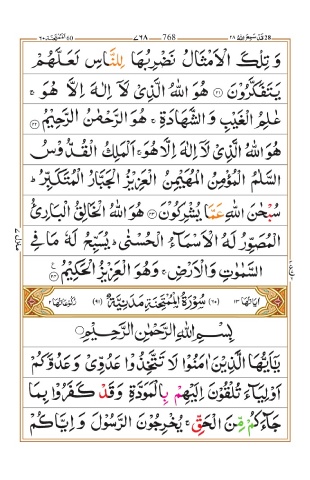 الممتحنة ٦٠ 60 ٧٦٨ 768 قد سمع الله ٢٨ 28
وَ تِلْكَ الْاَمْثَالُ نَضْرِبُهَا لِلنَّاسِ لَعَلَّهُمْ
يَتَفَكَّرُوْنَ ﴿٢١﴾ هُوَ اللّٰهُ الَّذِيْ لَاۤ اِلٰهَ اِلَّا هُوَ ۚ
عٰلِمُ الْغَيْبِ وَ الشَّهَادَةِ ۚ هُوَ الرَّحْمٰنُ الرَّحِيْمُ ﴿٢٢﴾
هُوَ اللّٰهُ الَّذِيْ لَاۤ اِلٰهَ اِلَّا هُوَ ۚ اَلْمَلِكُ الْقُدُّوْسُ
السَّلٰمُ الْمُؤْمِنُ الْمُهَيْمِنُ الْعَزِيْزُ الْجَبَّارُ الْمُتَكَبِّرُ ؕ
سُبْحٰنَ اللّٰهِ عَمَّا يُشْرِكُوْنَ ﴿٢٣﴾ هُوَ اللّٰهُ الْخَالِقُ الْبَارِئُ
الْمُصَوِّرُ لَهُ الْاَسْمَآءُ الْحُسْنٰى ؕ يُسَبِّحُ لَهٗ مَا فِي
السَّمٰوٰتِ وَ الْاَرْضِ ۚ وَهُوَ الْعَزِيْزُ الْحَكِيْمُ ﴿٢٤﴾
اٰيَاتُهَا ١٣ (٦٠) سُوْرَةُ الْمُمْتَحِنَةِ مَدَنِيَّةٌ (٩١) رُكُوْعَاتُهَا ٢
بِسْمِ اللّٰهِ الرَّحْمٰنِ الرَّحِيْمِ
يٰۤاَيُّهَا الَّذِيْنَ اٰمَنُوْا لَا تَتَّخِذُوْا عَدُوِّيْ وَ عَدُوَّكُمْ
اَوْلِيَآءَ تُلْقُوْنَ اِلَيْهِمْ بِالْمَوَدَّةِ وَ قَدْ كَفَرُوْا بِمَا
جَآءَكُمْ مِّنَ الْحَقِّ ۚ يُخْرِجُوْنَ الرَّسُوْلَ وَ اِيَّاكُمْ